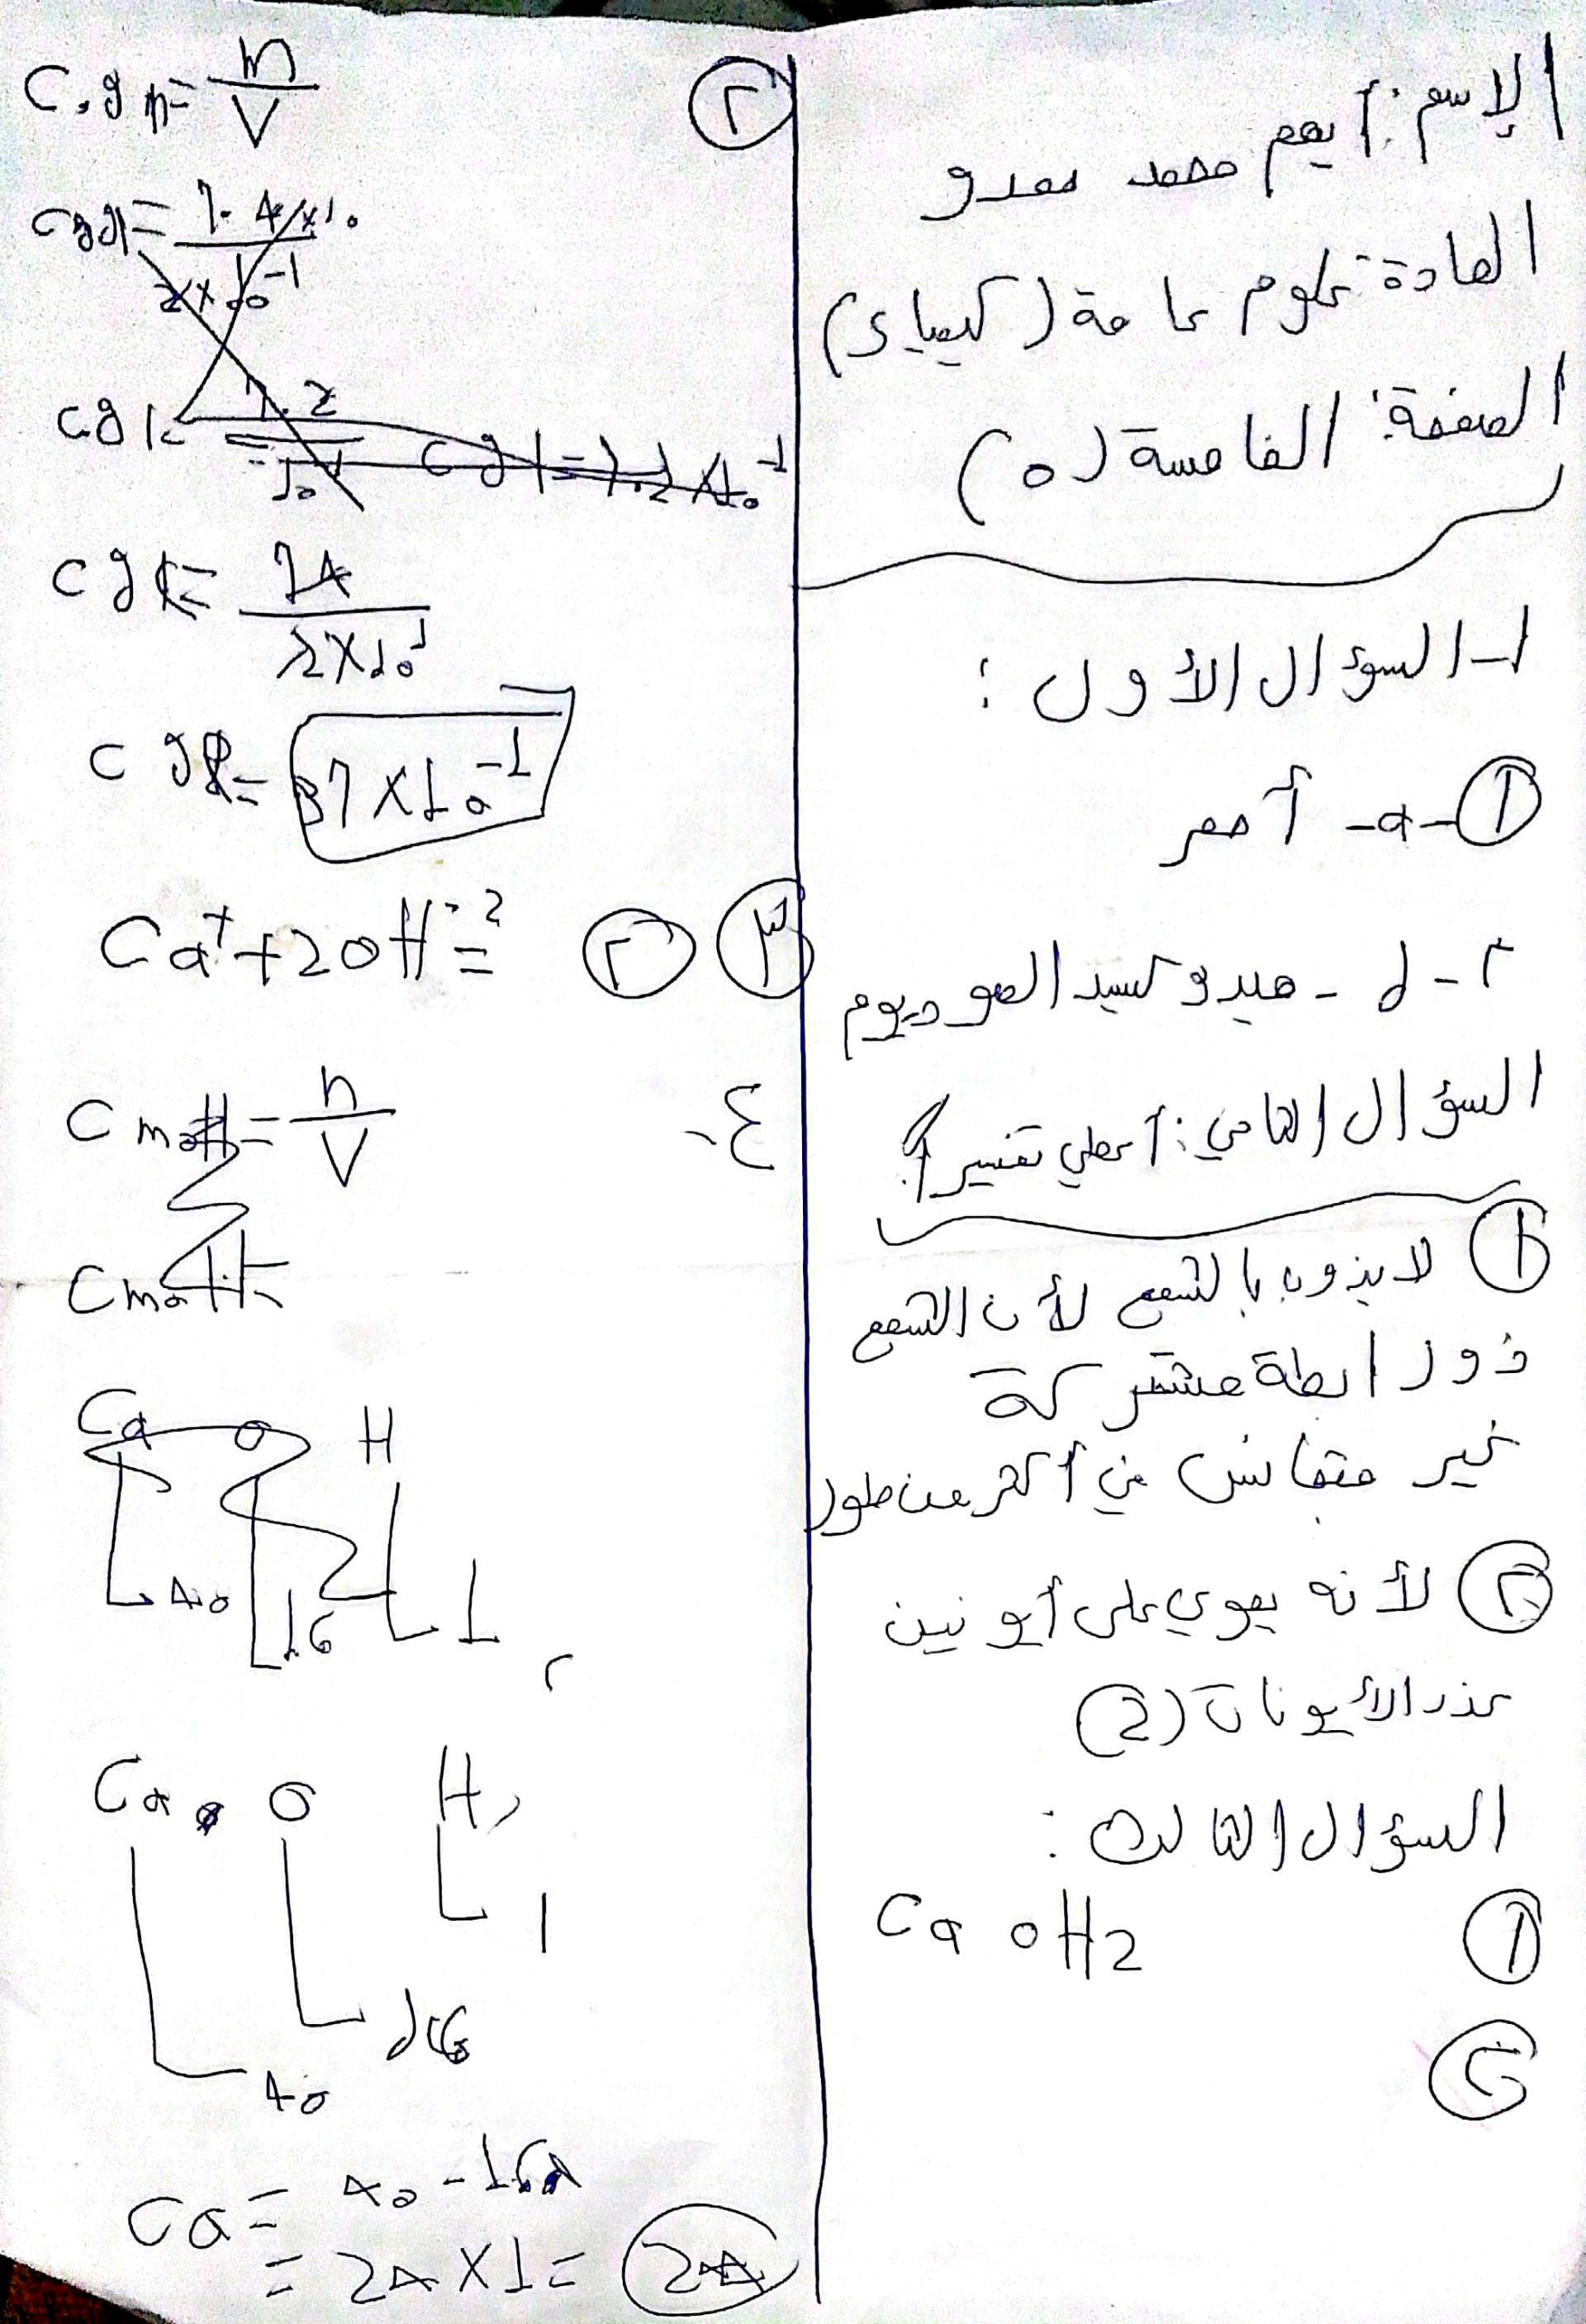 الإسم: أيهم محمد معدو
المادة علوم عامة (كيمياء)
الصفحة: الخامسة (٥)
١- السؤال الأول:
① -a- أحمر
٢ - d - هيدوكسيد الصوديوم
السؤال الثاني: أعطي تفسيراً:
① لا يذوب بالشمع لأن الشمع
ذو رابطة مشتركة
غير متجانس في أكثر من طور
② لأنه يحوي على أيونين
عدد الأيونات (2)
السؤال الثالث:
① Ca OH2
②
②
C.g = n/V
Cg = 74/2×10
Cg = 37 ×10-1
③ ② Ca+ + 2OH- = ?
٤- Cmol = n/V
Cmol =
Ca O H
40 16 1
Ca O H
1
16
40
Ca = 40 - 16
= 24 ×1 = 24